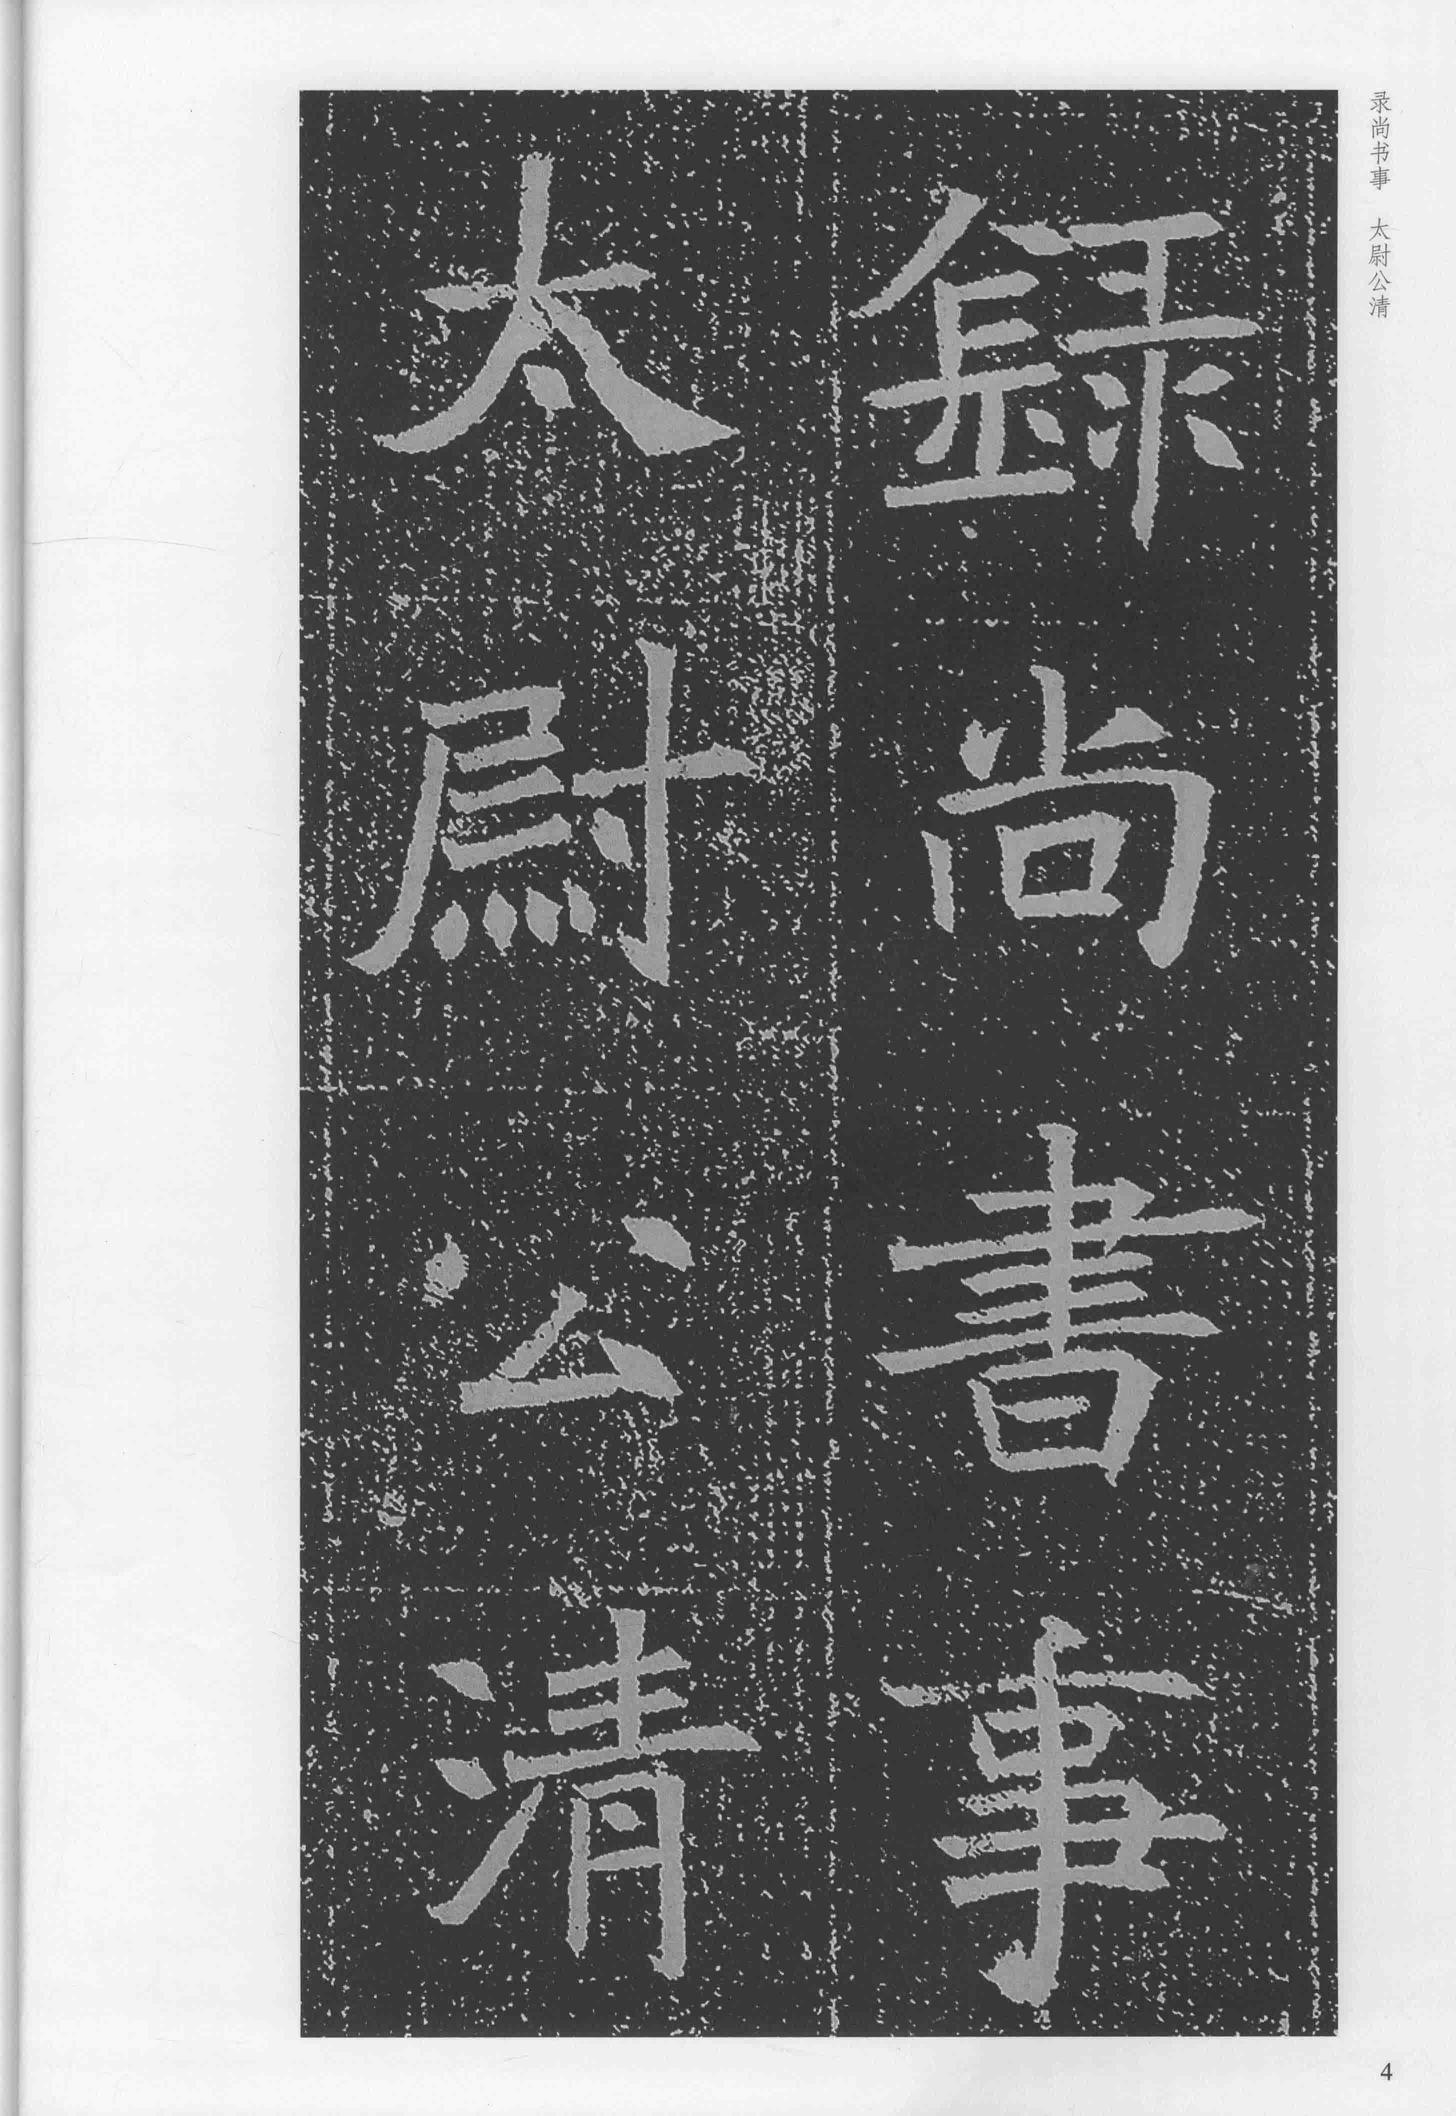 录尚书事　太尉公清
録尚書事
太尉公清
4